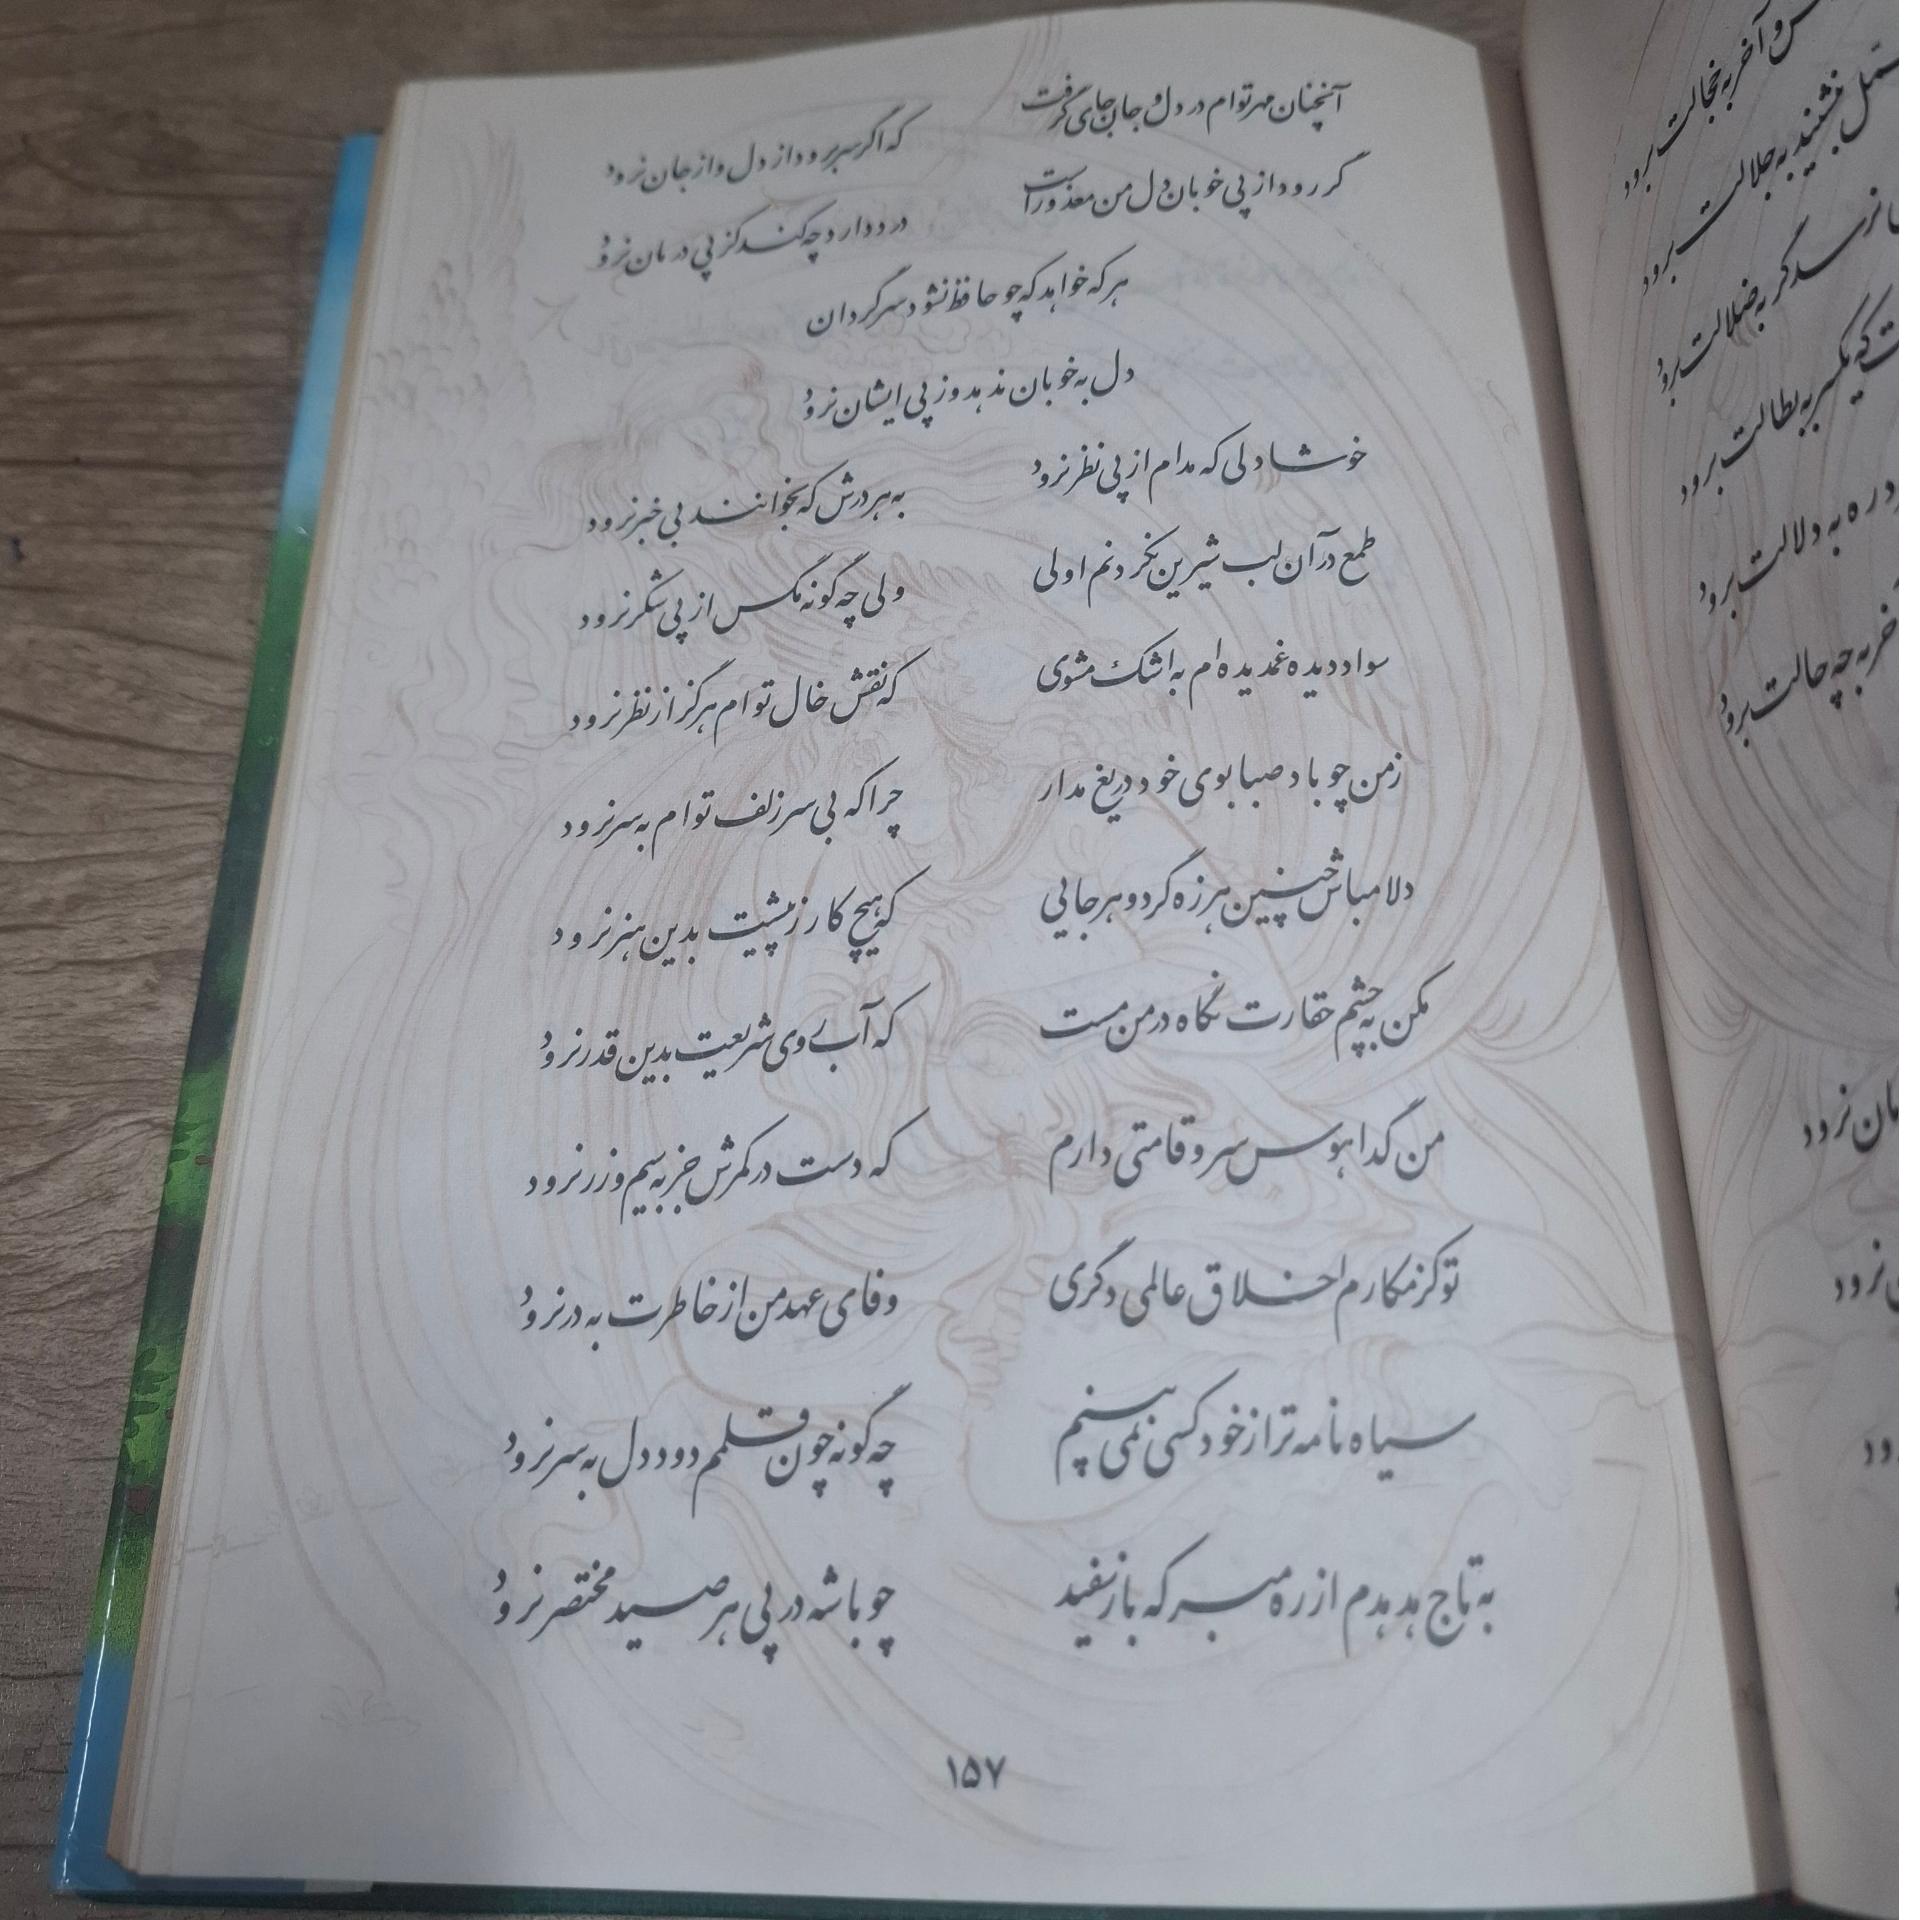 آنچنان مهر توام در دل و جان جای گرفت
که اگر سر برود از دل و از جان نرود
گر رود از پی خوبان دل من معذور است
درد دارد چه کند کز پی درمان نرود
هر که خواهد که چو حافظ نشود سرگردان
دل به خوبان ندهد وز پی ایشان نرود
خوشا دلی که مدام از پی نظر نرود
به هر درش که بخوانند بی خبر نرود
طمع در آن لب شیرین نکردنم اولی
ولی چه گونه مگس از پی شکر نرود
سواد دیده غمدیده ام به اشک مشوی
که نقش خال توام هرگز از نظر نرود
ز من چو باد صبا بوی خود دریغ مدار
چرا که بی سر زلف توام به سر نرود
دلا مباش چنین هرزه گرد و هرجایی
که هیچ کار ز پیشت بدین هنر نرود
مکن به چشم حقارت نگاه در من مست
که آبروی شریعت بدین قدر نرود
من گدا هوس سرو قامتی دارم
که دست در کمرش جز به سیم و زر نرود
تو کز مکارم اخلاق عالمی دگری
وفای عهد من از خاطرت به در نرود
سیاه نامه تر از خود کسی نمی بینم
چه گونه چون قلمم دود دل به سر نرود
به تاج هدهدم از ره مبر که باز سفید
چو باشه در پی هر صید مختصر نرود
۱۵۷
آخر به خجالت برود
بنشیند به جلالت برود
گر به ضلالت برود
که یکسر به بطالت برود
ره به دلالت برود
به چه حالت برود
نرود
نرود